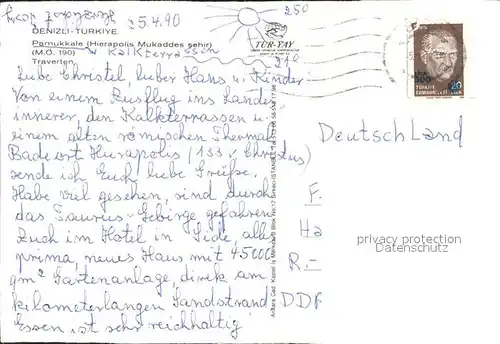 25.4.90
250
DENIZLI-TÜRKIYE
Pamukkale (Hierapolis Mukaddes şehir)
(M.Ö. 190)
Travertenler
Kalkterrassen
TUR-YAY
210
Liebe Christel, lieber Hans u. Kinder
Von einem Ausflug ins Landes-
innerer, den Kalkterrassen u.
einem alten römischen Thermal
Badeort Hierapolis (133 v. Christus)
sende ich Euch liebe Grüße.
Habe viel gesehen, sind durch
das Taurus-Gebirge gefahren
Auch im Hotel in Side, alles
prima, neues Haus mit 45000
qm² Gartenanlage, direkt am
kilometerlangen Sandstrand
Essen ist sehr reichhaltig
TÜRKİYE
CUMHURİYETİ
20
Deutschland
F.
Ha
R.-
DDR
privacy protection
Datenschutz